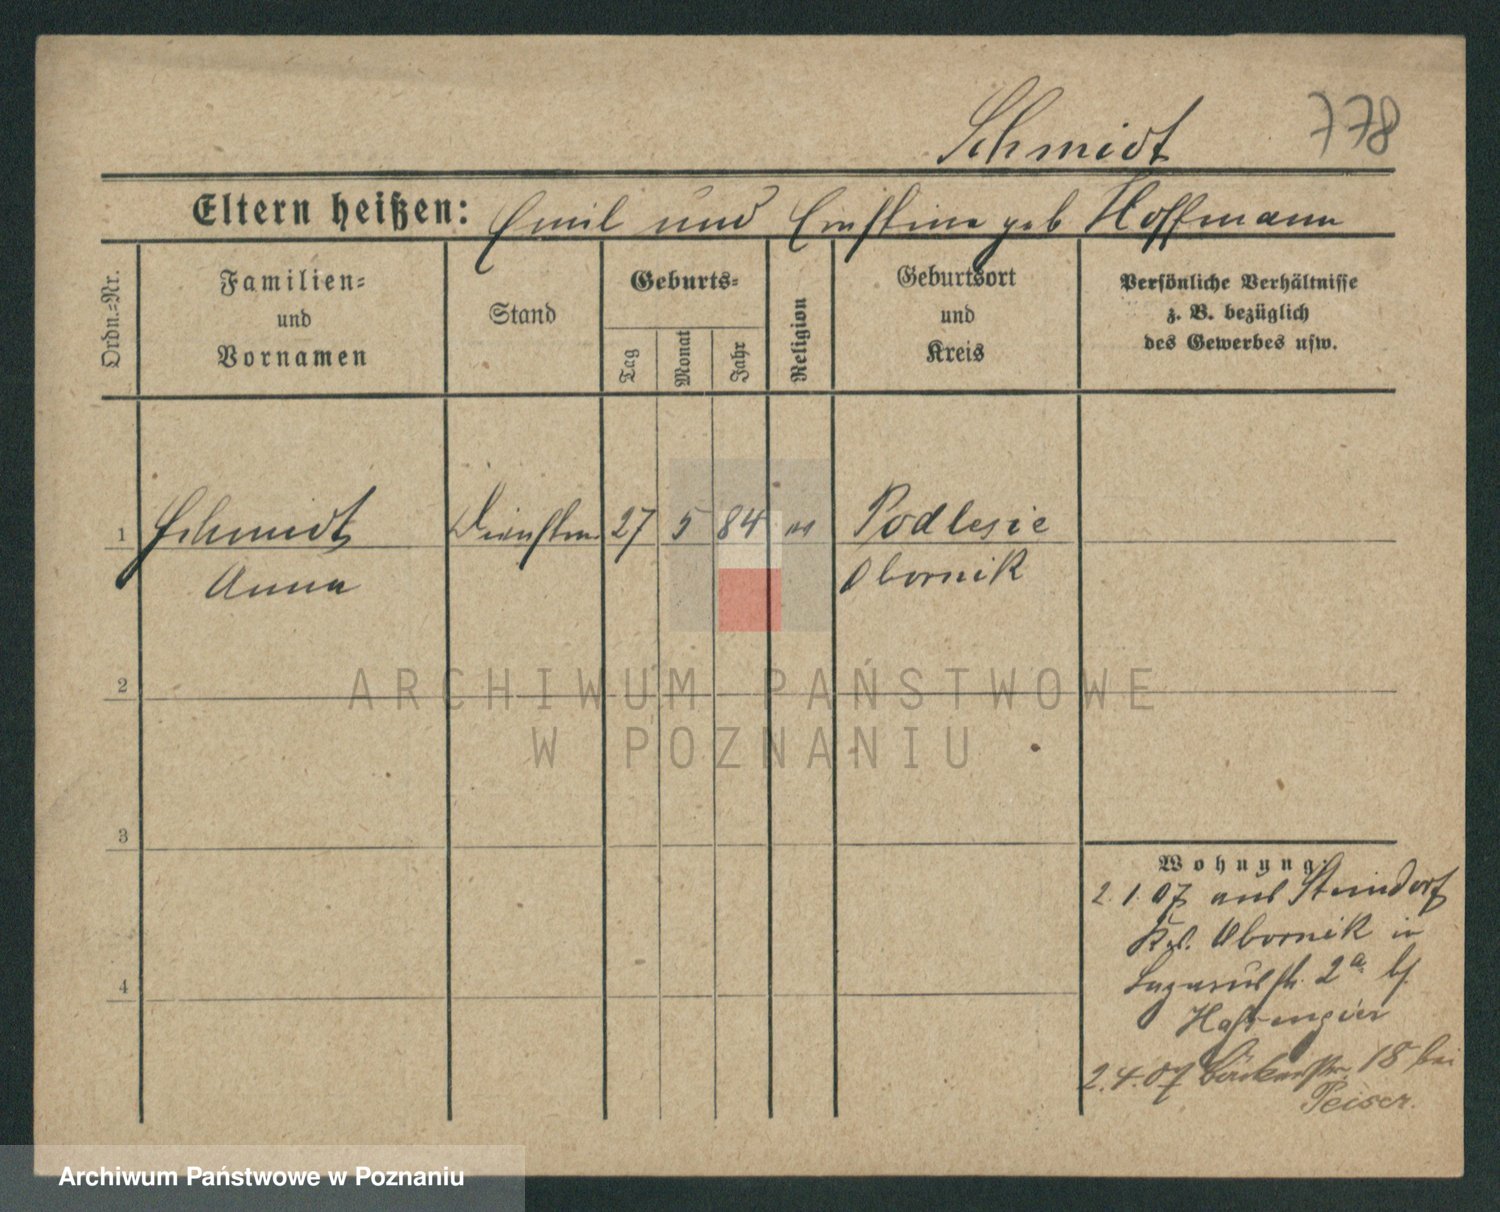 Schmidt 778
Eltern heißen: Emil und Ernstine geb Hoffmann
Ordn.-Nr.
Familien-
und
Vornamen
Stand
Geburts-
Tag
Monat
Jahr
Religion
Geburtsort
und
Kreis
Persönliche Verhältnisse
z. B. bezüglich
des Gewerbes usw.
1 Schmidt Dienstm. 27 5 84 Podlesie
Anna Obornik
2
3
4
ARCHIWUM PAŃSTWOWE
W POZNANIU
Wohnung.
2.1.07 aus Steindorf
Krs. Obornik in
Lazarusstr. 2a b/
2.4.07 Bäckerstr. 18 bei
Peiser.
Archiwum Państwowe w Poznaniu